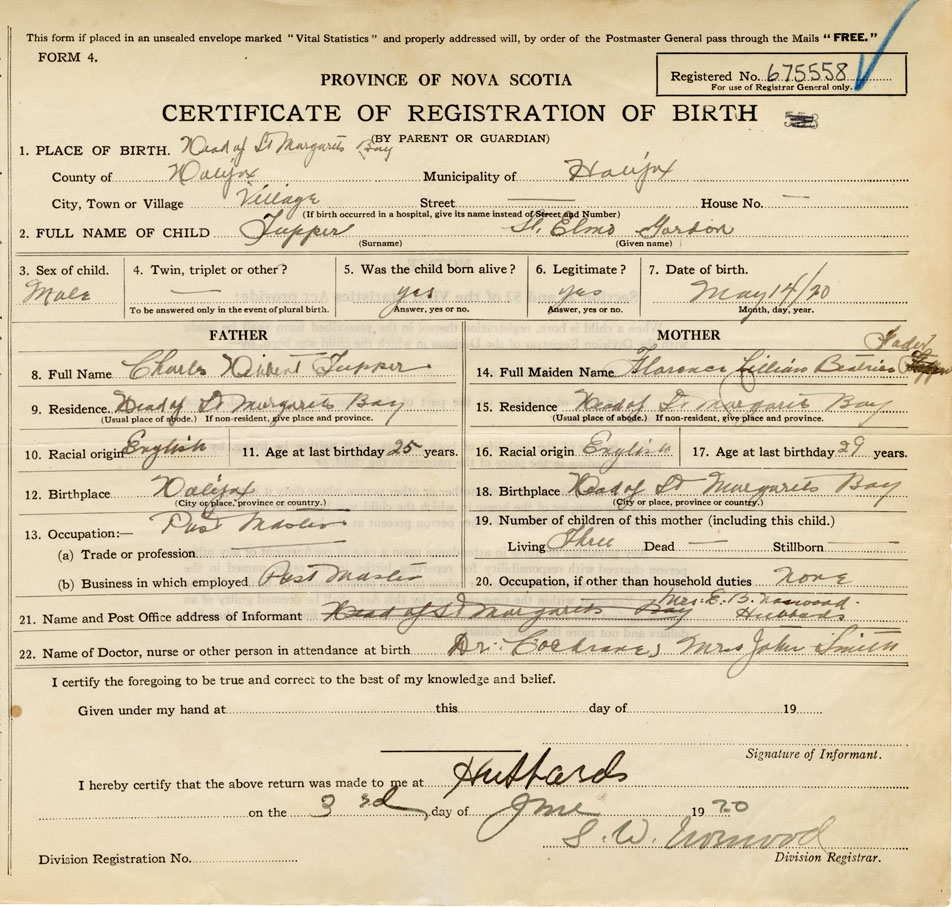 This form if placed in an unsealed envelope marked "Vital Statistics" and properly addressed will, by order of the Postmaster General pass through the Mails "FREE."
FORM 4.
PROVINCE OF NOVA SCOTIA
Registered No. 675558
For use of Registrar General only.
CERTIFICATE OF REGISTRATION OF BIRTH
(BY PARENT OR GUARDIAN)
1. PLACE OF BIRTH. Head of St Margarets Bay
County of Halifax Municipality of Halifax
City, Town or Village Village Street House No. —
(If birth occurred in a hospital, give its name instead of Street and Number)
2. FULL NAME OF CHILD Tupper St. Elmo Gordon
(Surname) (Given name)
3. Sex of child. 4. Twin, triplet or other? 5. Was the child born alive? 6. Legitimate? 7. Date of birth.
Male — yes yes May 14/20
To be answered only in the event of plural birth. Answer, yes or no. Answer, yes or no. Month, day, year.
FATHER MOTHER
8. Full Name Charles Tupper 14. Full Maiden Name Florence Lillian Beatrice Fader
9. Residence. Head of St Margarets Bay 15. Residence Head of St Margarets Bay
(Usual place of abode.) If non-resident, give place and province. (Usual place of abode.) If non-resident, give place and province.
10. Racial origin English 11. Age at last birthday 25 years. 16. Racial origin English 17. Age at last birthday 29 years.
12. Birthplace Halifax 18. Birthplace Head of St Margarets Bay
(City or place, province or country.) (City or place, province or country.)
13. Occupation:— Post Master 19. Number of children of this mother (including this child.)
(a) Trade or profession Living Three Dead — Stillborn —
(b) Business in which employed Post Master 20. Occupation, if other than household duties none
21. Name and Post Office address of Informant Head of St Margarets Bay Mrs. E. B. Norwood Hubbards
22. Name of Doctor, nurse or other person in attendance at birth Dr. Cochrane, Mrs John Smith
I certify the foregoing to be true and correct to the best of my knowledge and belief.
Given under my hand at this day of 19
Signature of Informant.
I hereby certify that the above return was made to me at Hubbards
on the 3rd day of June 1920
Norwood
Division Registration No. Division Registrar.